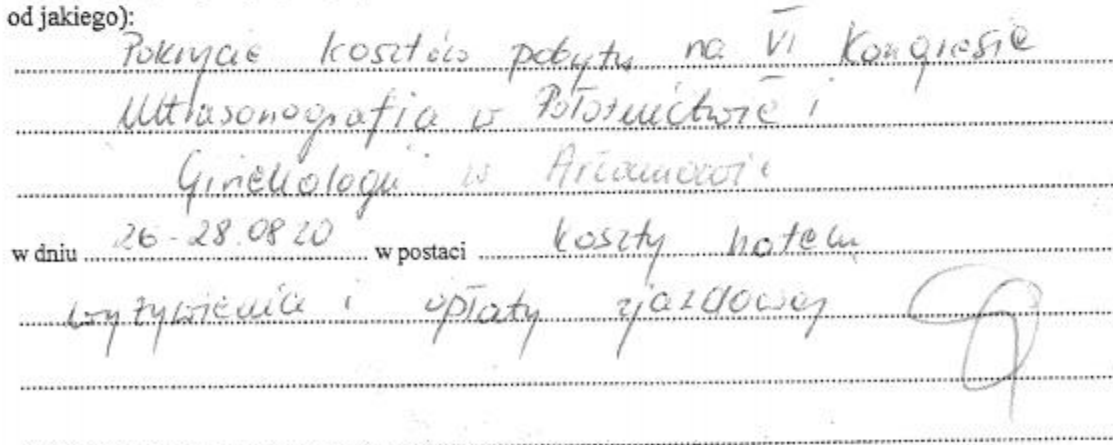 od jakiego):
Pokrycie kosztów pobytu na VI Kongresie
Ultrasonografia w Położnictwie i
Ginekologii w Arłamowie
w dniu 26-28.08 20 w postaci koszty hotelu
wyżywienia i opłaty zjazdowej